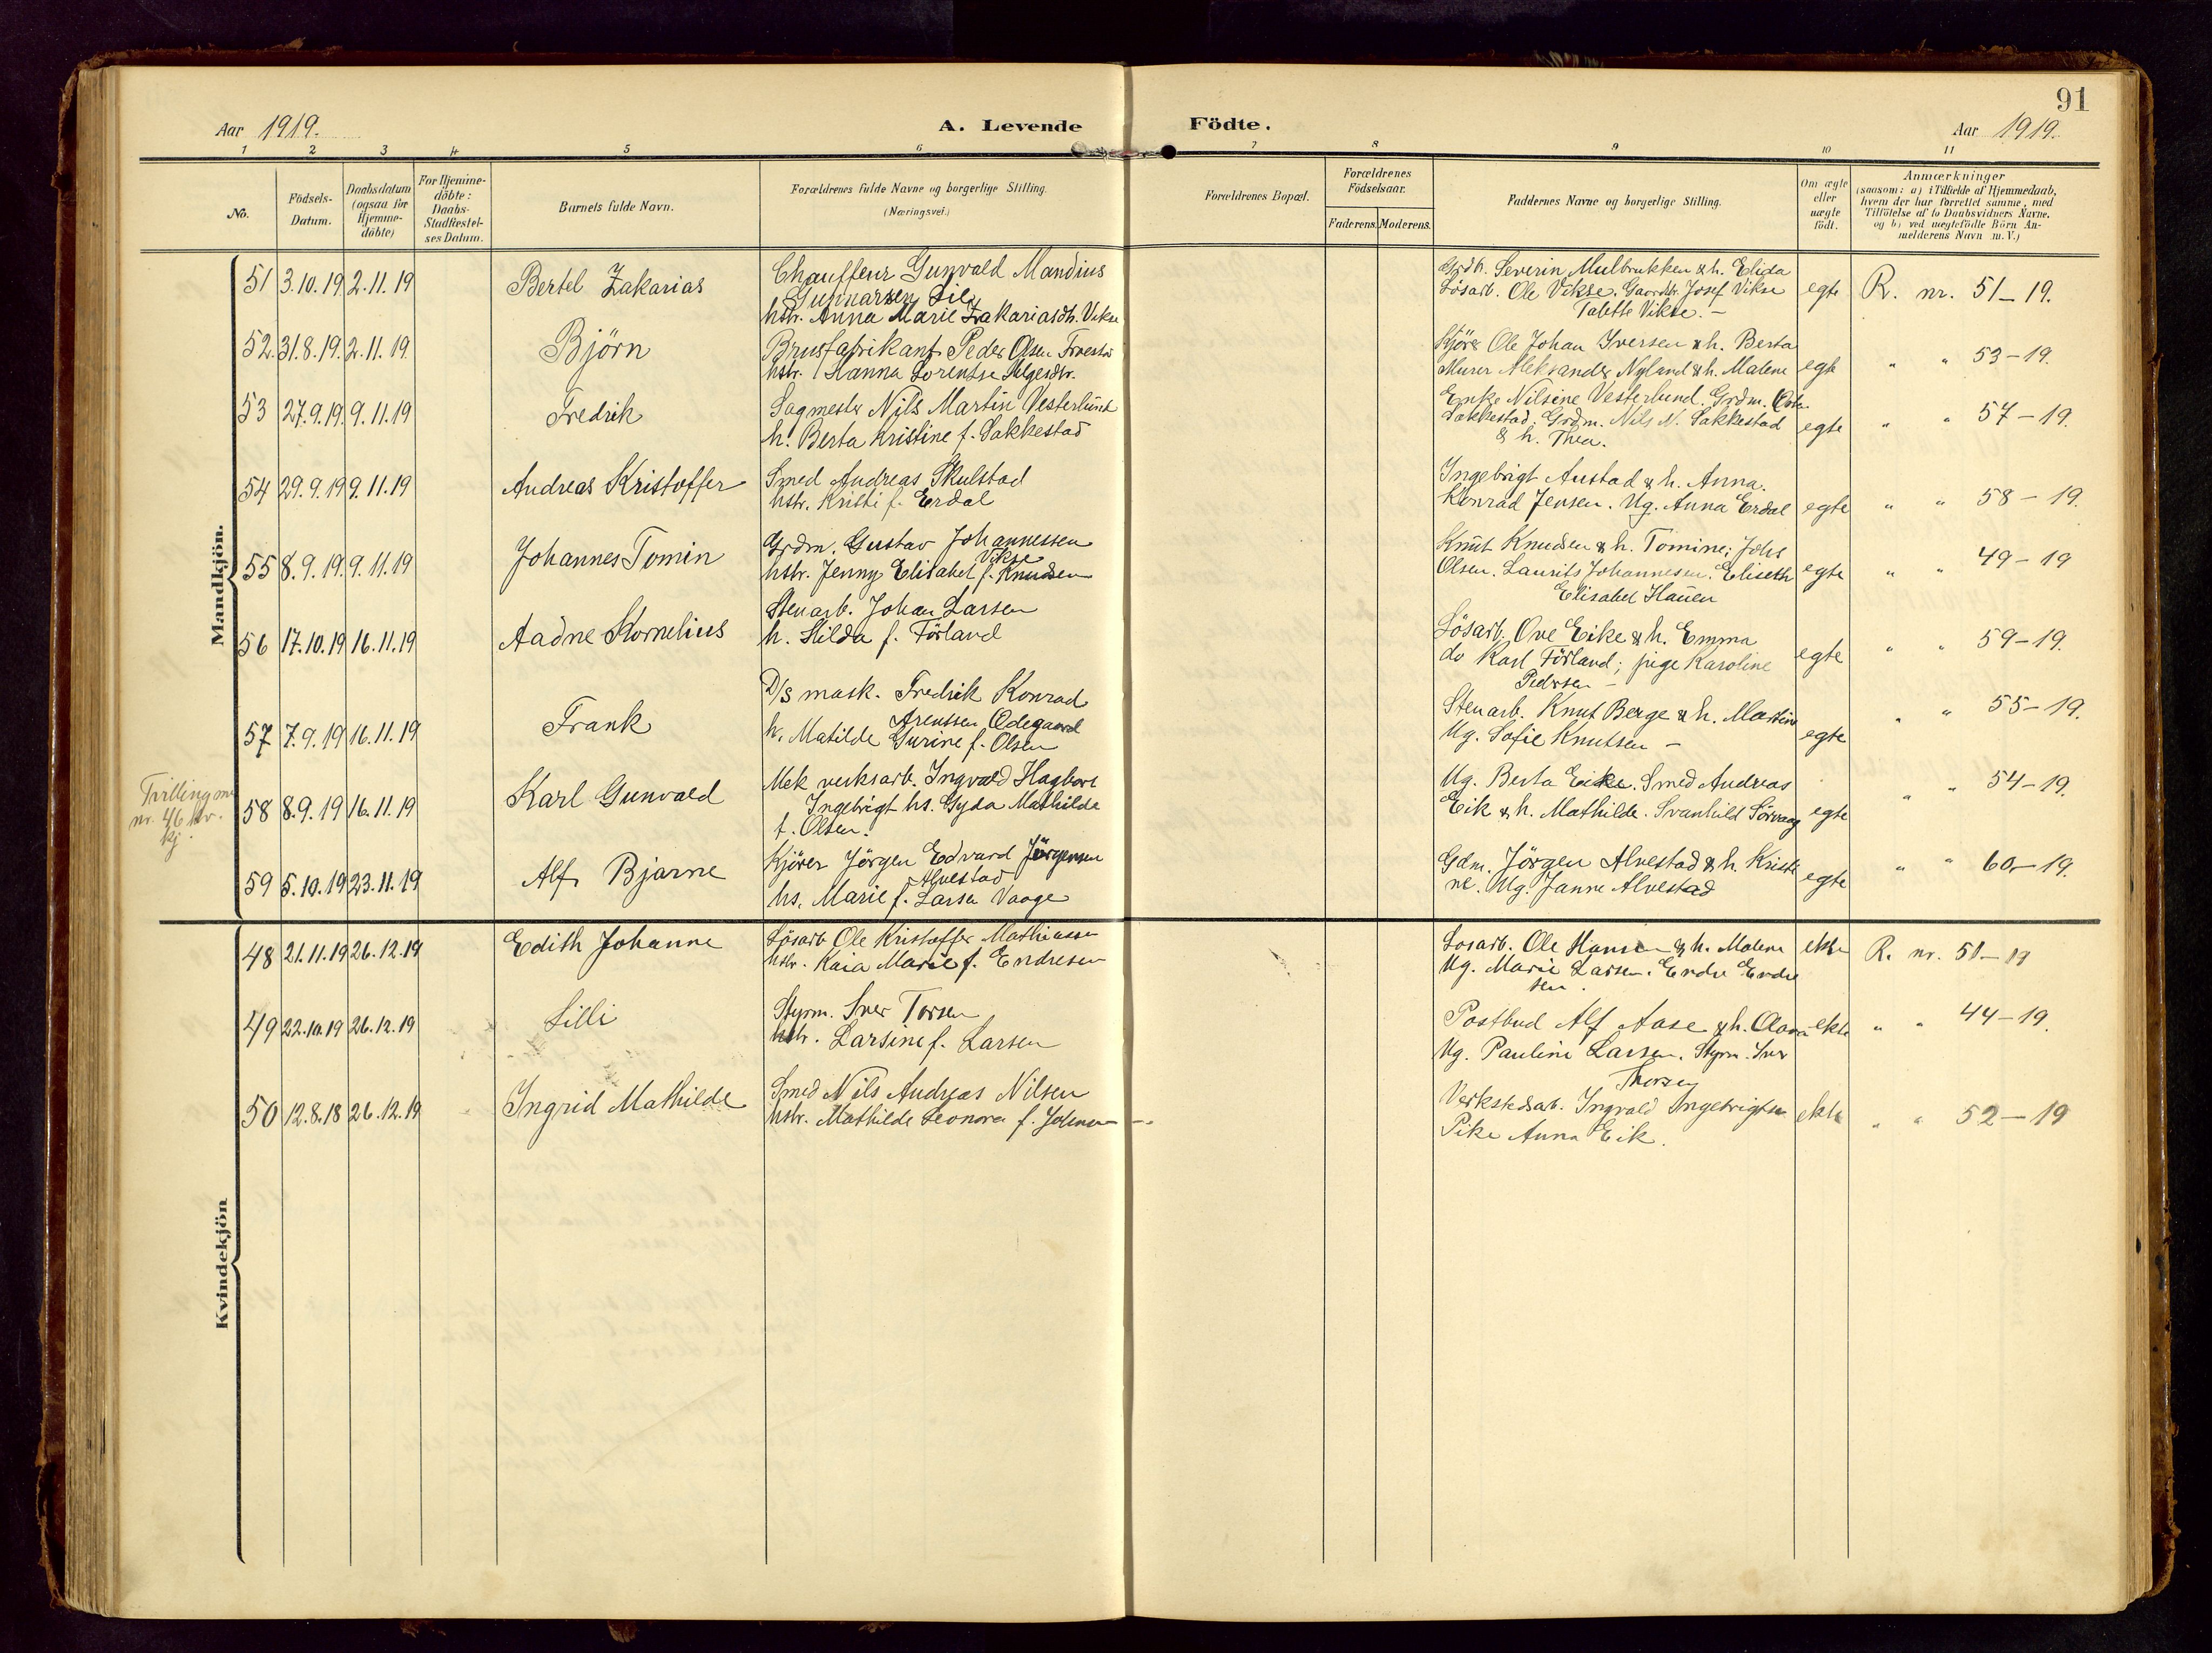 91
Aar 1919.
A. Levende Födte.
Aar 1919.
1 2 3 4 5 6 7 8 9 10 11
No.
Födsels-Datum.
Daabsdatum (ogsaa for Hjemme-döbte)
For Hjemme-döbte: Daabs-Stadfæstel-ses Datum.
Barnets fulde Navn.
Forældrenes fulde Navne og borgerlige Stilling. (Næringsvei.)
Forældrenes Bopæl.
Forældrenes Födselsaar.
Faderens. Moderens.
Faddernes Navne og borgerlige Stilling.
Om ægte eller uægte födt.
Anmærkninger
(saasom: a) i Tilfælde af Hjemmedaab,
hvem der har forrettet samme, med
Tilföielse af to Daabsvidners Navne.
og b) ved uægtefödte Börn An-
melderens Navn m.V.)
Mandkjön.
51 3.10.19 2.11.19 Bertel Zakarias
Chauffeur Gunvald Mandius
Gunnarsen Lie
hstr. Anna Marie Zakariasdtr. Vikse
Grdb. Severin Mulbrukken & h. Elida
Lösarb. Ole Vikse. Gaardbr. Josef Vikse
Talette Vikse. –
egte R. nr. 51–19.
52 31.8.19. 2.11.19. Björn
Brusfabrikant Peder Olsen
hstr. Hanna Lorentse Helgesdtr.
Kjörer Ole Johan Iversen & h. Berta
Murer Aleksander Nyland & h. Malene
egte " " 53–19.
53 27.9.19. 9.11.19 Fredrik
Sagmester Nils Martin Vesterlund
h. Berta Kristine f. Sakkestad
Enke Nilsine Vesterlund. Grdm.
Sakkestad. Grdm. Nils N. Sakkestad
& h. Thea.
egte " " 57–19.
54 29.9.19 9.11.19 Andreas Kristoffer
Smed Andreas Skulstad
hstr. Kristi f. Erdal
Ingebrigt Austad & h. Anna.
Konrad Jensen. Ug. Anna Erdal
egte " " 58–19.
55 8.9.19. 9.11.19 Johannes Tomin
Grdm. Gustav Johannessen
Vikse
hstr. Jenny Elisabet f. Knudsen
Knut Knudsen & h. Tomine; Johs
Olsen. Laurits Johannesen. Eliseth
Elisabet Hauen
egte " " 49–19
56 17.10.19 16.11.19 Aadne Kornelius
Stenarb. Johan Larsen
h. Hilda f. Förland
Lösarb. Ove Eike & h. Emma
do Karl Förland; pige Karoline
Pedersen –
egte " " 59–19.
57 7.9.19 16.11.19 Frank
D/s mask. Fredrik Konrad
Arentsen Ödegaard
h. Matilde Gurine f. Olsen
Stenarb. Knut Berge & h. Martine
Ug. Sofie Knutsen –
egte " " 55–19.
Trilling
nr. 46 kv.
kj.
58 8.9.19 16.11.19 Karl Gunvald
Mek verksarb. Ingvald Hagbart
Ingebrigt hs. Gyda Mathilde
f. Olsen.
Ug. Berta Eike. Smed Andreas
Eik & h. Mathilde. Svanhild Sörvaag
egte " " 54–19.
59 5.10.19 23.11.19 Alf Bjarne
Kjörer Jörgen Edvard Jörgensen
Alvestad
hs. Marie f. Larsen Vaage
Gdm. Jörgen Alvestad & h. Kristi
ne. Ug. Janne Alvestad
egte " " 60–19.
Kvindekjön
48 21.11.19 26.12.19 Edith Johanne
Lösarb Ole Kristoffer Mathiassen
hstr. Kaia Marie f. Endresen
Losarb. Ole Hansen & h. Malene
Ug. Marie Larsen. Endre Endre
sen.
ekte R. nr. 51–19
49 22.10.19 26.12.19 Lilli
Styrm. Iver Torsen
hstr. Larsine f. Larsen
Postbud Alf Aase & h. Olava
Ug. Pauline Larsen. Styrm. Iver
Thorsen
ekte " " 44–19.
50 12.8.18 26.12.19 Ingrid Mathilde
Smed Nils Andreas Nilsen
hstr. Mathilde Leonora f. Johnsen
Verkstedsarb. Ingvald Ingebrigtsen
Pike Anna Eik.
ekte " " 52–19